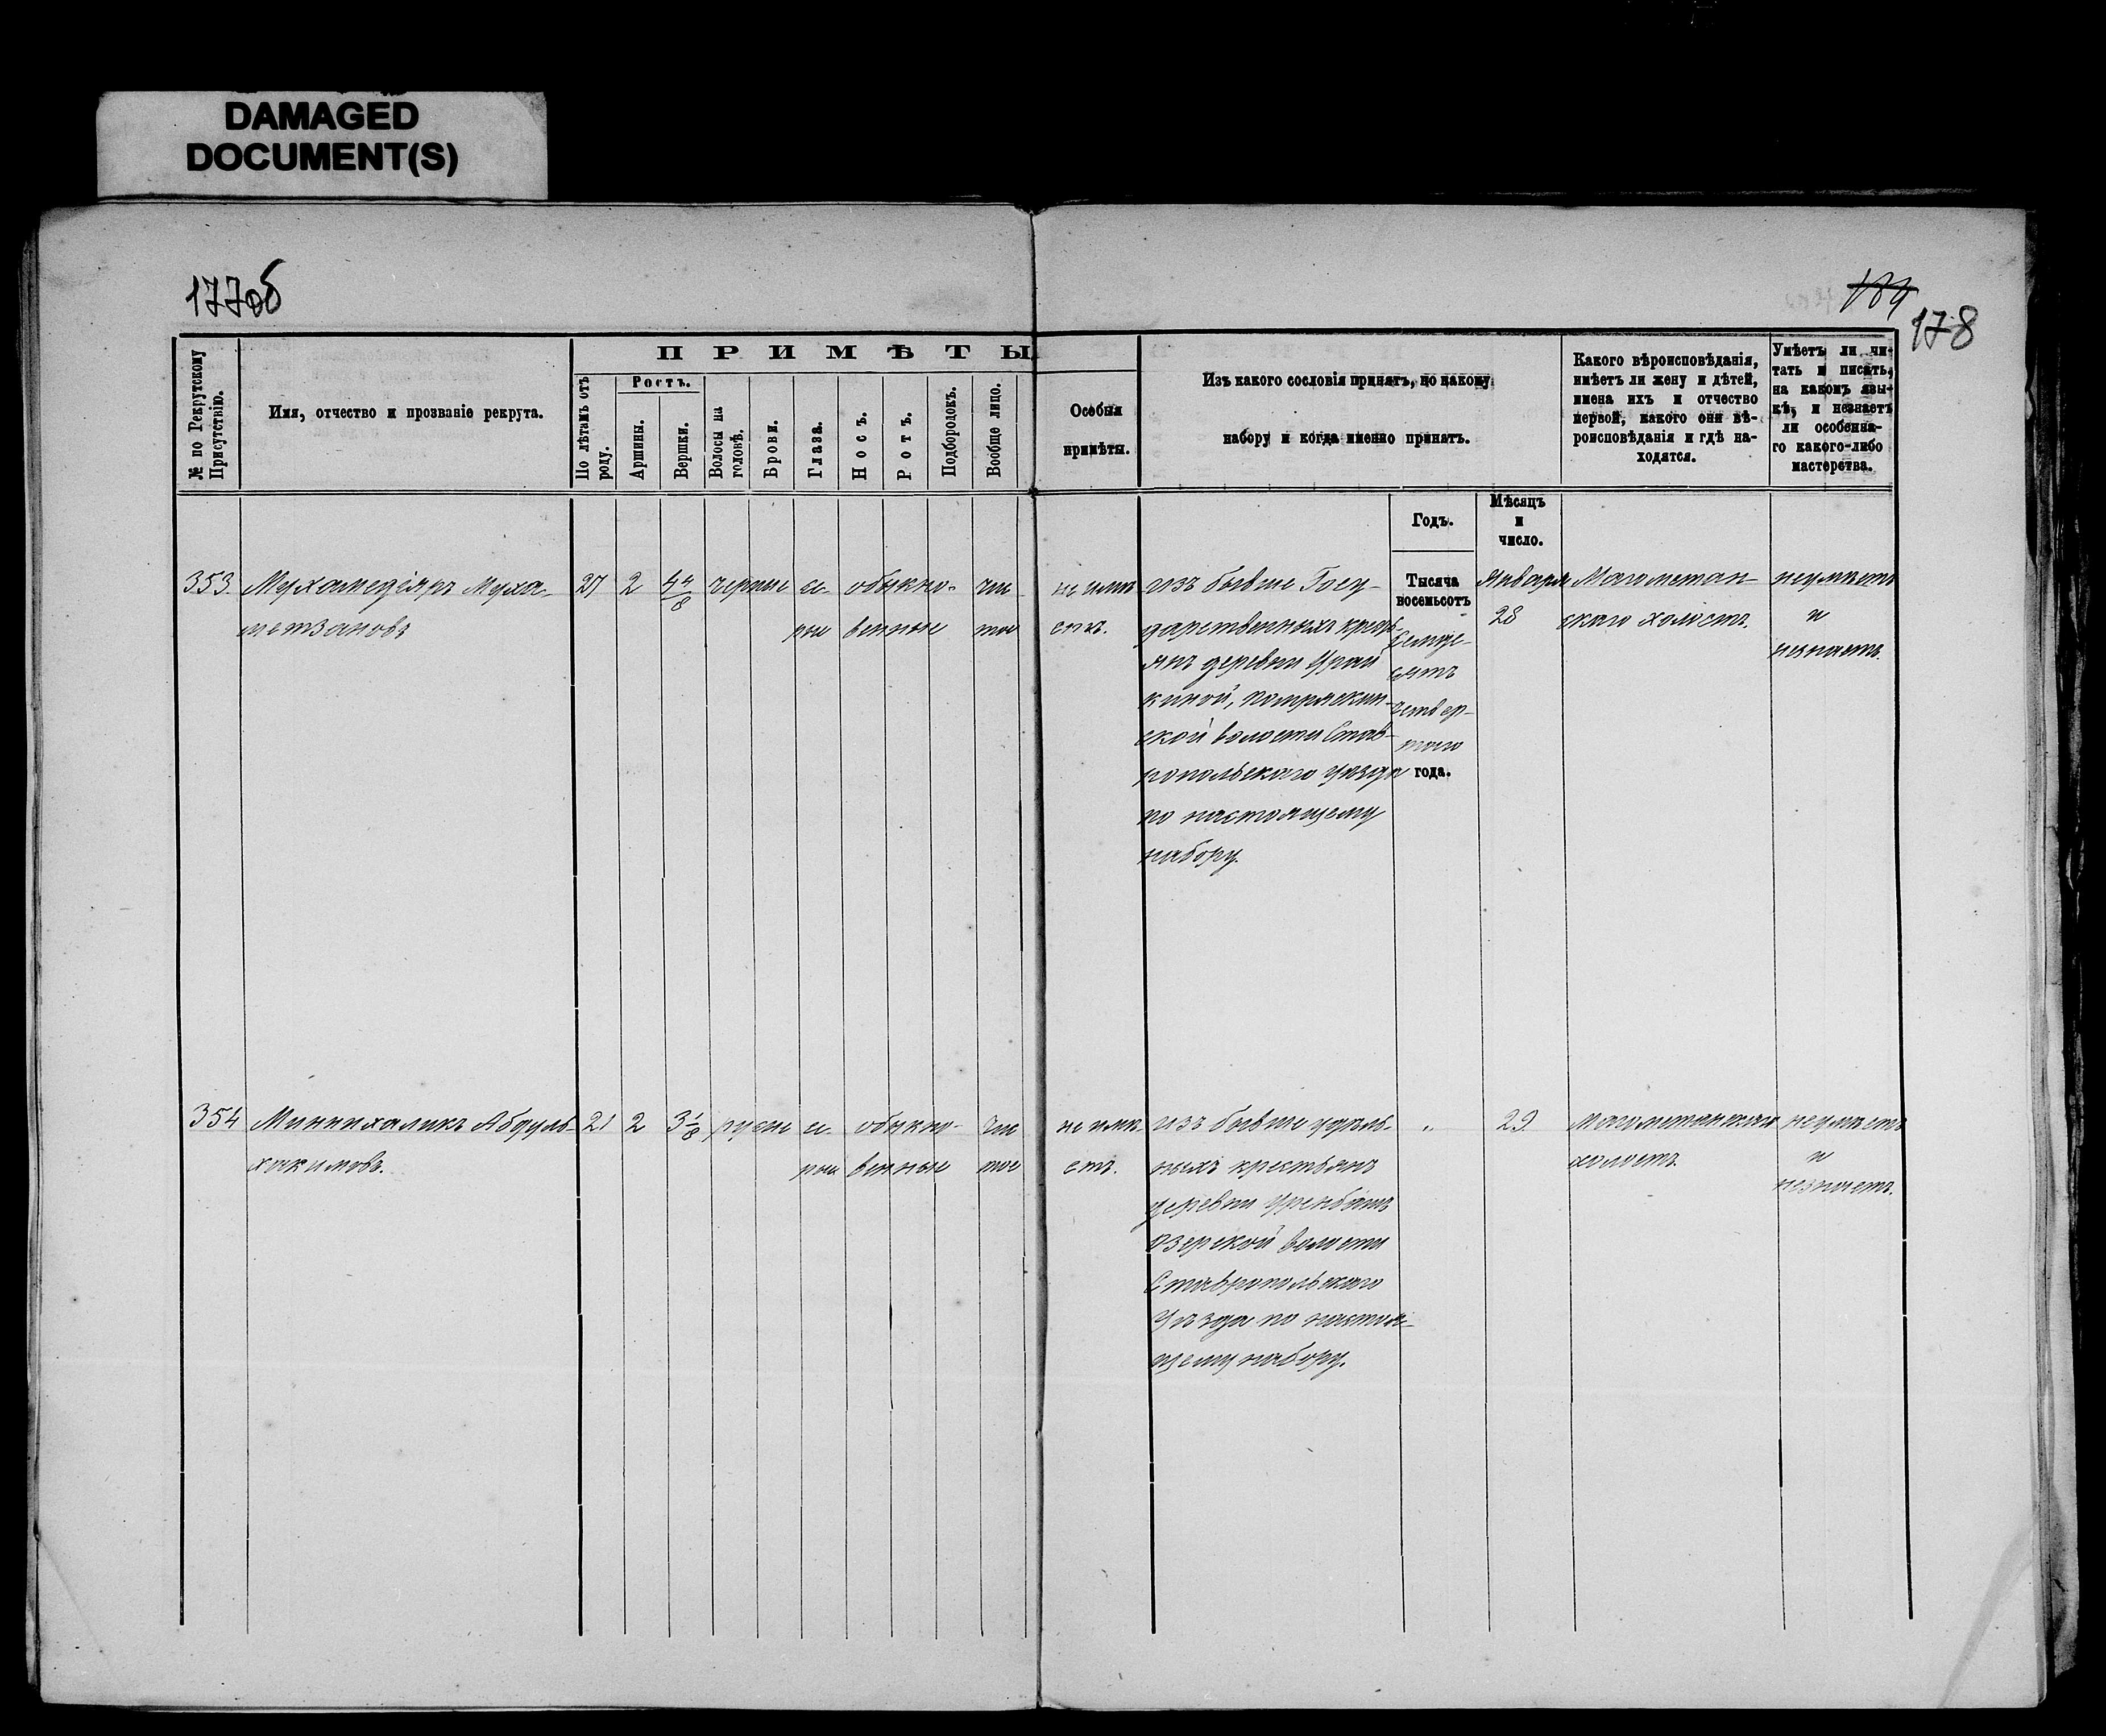 DAMAGED
DOCUMENT(S)
177об
189
178
№ по Рекрутскому Присутствію.
Имя, отчество и прозваніе рекрута.
ПРИМѢТЫ
По лѣтамъ отъ роду.
Ростъ.
Аршины.
Вершки.
Волосы на головѣ.
Брови.
Глаза.
Носъ.
Ротъ.
Подбородокъ.
Вообще лицо.
Особыя
примѣты.
Изъ какого сословія принятъ, по какому
набору и когда именно принятъ.
Какого вѣроисповѣданія,
имѣетъ ли жену и дѣтей,
имена ихъ и отчество
первой, какого они вѣ-
роисповѣданія и гдѣ на-
ходятся.
Умѣетъ ли чи-
тать и писать,
на какомъ язы-
кѣ, и незнаетъ
ли особенна-
го какого-либо
мастерства.
Годъ.
Мѣсяцъ
и
число.
353. Мухамедіяръ Муха-
метзановъ
27 2 4 4/8 черные сѣ- обыкно- чи
рые венные тое
не имѣ
етъ.
изъ бывше Госу-
дарственныхъ кресть-
янъ деревни Урай
киной,
ской волости Став-
ропольскаго уѣзда
по настоящему
набору.
Тысяча
восемьсотъ
семде-
сятъ
четвер-
таго
года.
Января
28
Магометан-
скаго холостъ.
неумѣетъ
и
незнаетъ.
354 Миннихаликъ Абдуль-
хакимовъ.
21 2 3 1/8 русые сѣ- обыкно- чи
рые венные тое
не имѣ-
етъ.
изъ бывше удѣль-
ныхъ крестьянъ
деревни Уренбашъ
Озерской волости
Ставропольскаго
Уѣзда по настоя-
щему набору.
"
29.
Магометанскаго
холостъ.
неумѣетъ
и
незнаетъ.